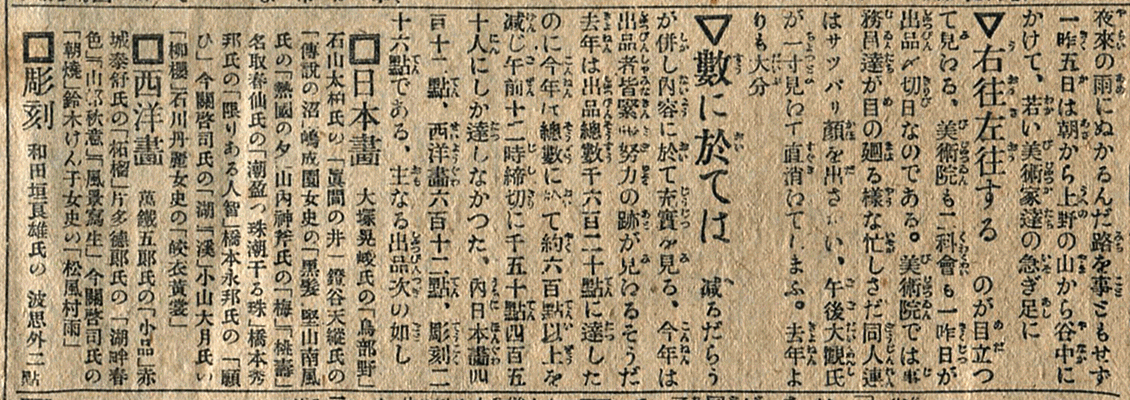 夜來の雨にぬかるんだ路を事ともせず
一昨五日は朝から上野の山から谷中に
かけて、若い美術家達の急ぎ足に
▽右往左往する のが目立つ
て見ゆる、美術院も二科會も一昨日が
出品〆切日なのである。美術院では事
務員達が目の廻る樣な忙しさだ同人連
はサツパリ顏を出さない、午後大觀氏
が一寸見ゆて直消ゆてしまふ。去年よ
りも大分
▽數に於ては 減るだらう
が併し內容に於て充實を見る、今年は
出品者皆緊 努力の跡が見ゆるそうだ
去年は出品總數千六百二十點に達した
のに今年は總數に於て約六百點以上を
減じ午前十二時締切に千五十點四百五
十人にしか達しなかつた、內日本畵四
百十一點、西洋畵六百十二點、彫刻二
十六點である、主なる出品次の如し
□日本畵 大塚晃崚氏の「鳥部野」
石山太柏氏の「眞間の井」鐙谷天縱氏の
「傳說の沼」嶋成園女史の「黑髮」堅山南風
氏の「熱國の夕」山內神斧氏の「梅」「桃壽」
名取春仙氏の「潮盈つ珠潮干る珠」橋本秀
邦氏の「限りある人智」橋本永邦氏の「願
ひ」今關啓司氏の「湖」「溪」小山大月氏の
「柳櫻」石川丹麗女史の「皎衣黃裳」
□西洋畵 萬鐵五郞氏の「小品」赤
城泰舒氏の「柘榴」片多德郞氏の「湖畔春
色」「山 秋意」「風景寫生」今關啓司氏の
「朝燒」鈴木けん子女史の「松風村雨」
□彫刻 和田垣良雄氏の 波思外二點